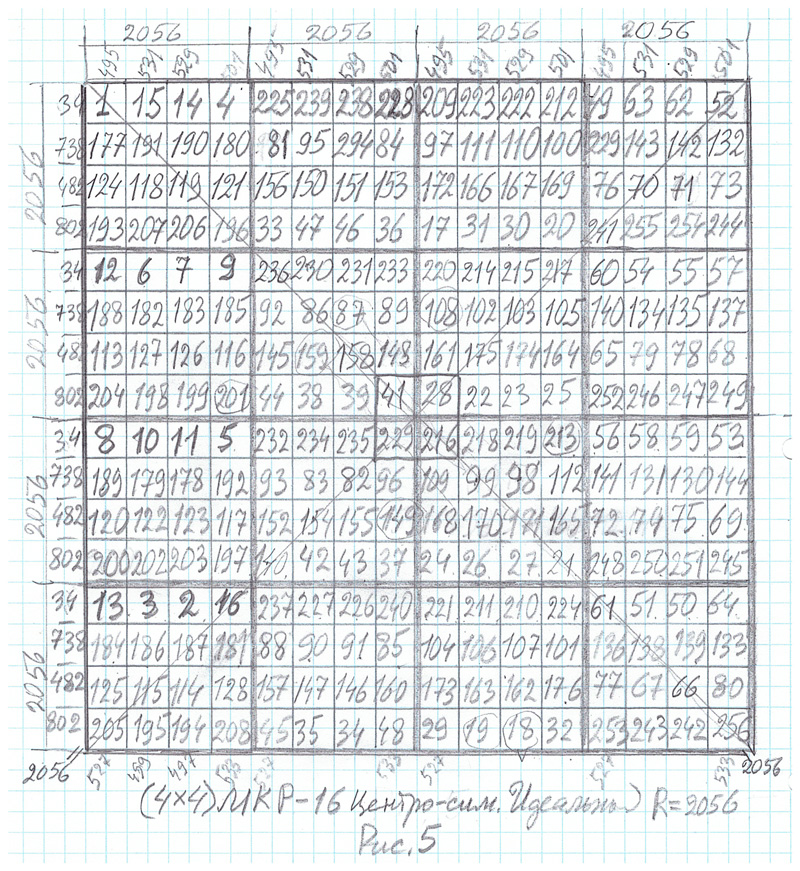 2056 2056 2056 2056
495 531 529 501 495 531 529 501 495 531 529 501 495 531 529 501
34 1 15 14 4 225 239 238 228 209 223 222 212 49 63 62 52
738 177 191 190 180 81 95 294 84 97 111 110 100 229 143 142 132
482 124 118 119 121 156 150 151 153 172 166 167 169 76 70 71 73
802 193 207 206 196 33 47 46 36 17 31 30 20 241 255 254 244
2056
34 12 6 7 9 236 230 231 233 220 214 215 217 60 54 55 57
738 188 182 183 185 92 86 87 89 108 102 103 105 140 134 135 137
482 113 127 126 116 145 159 158 148 161 175 174 164 65 79 78 68
802 204 198 199 201 44 38 39 41 28 22 23 25 252 246 247 249
2056
34 8 10 11 5 232 234 235 229 216 218 219 213 56 58 59 53
738 189 179 178 192 93 83 82 96 109 99 98 112 141 131 130 144
482 120 122 123 117 152 154 155 149 168 170 171 165 72 74 75 69
802 200 202 203 197 140 42 43 37 24 26 27 21 248 250 251 245
2056
34 13 3 2 16 237 227 226 240 221 211 210 224 61 51 50 64
738 184 186 187 181 88 90 91 85 104 106 107 101 136 138 139 133
482 125 115 114 128 157 147 146 160 173 163 162 176 77 67 66 80
802 205 195 194 208 45 35 34 48 29 19 18 32 253 243 242 256
2056
2056 527 499 497 533 527 533 527 527 533 2056
(4×4) МКР-16 Центро-сим. Идеальн) R=2056
Рис. 5